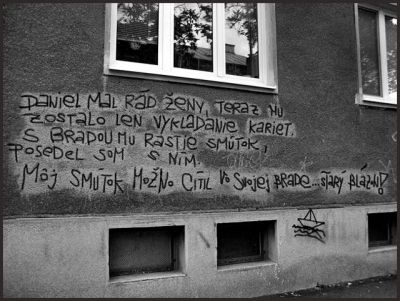 DANIEL MAL RÁD ŽENY, TERAZ MU
ZOSTALO LEN VYKLADANIE KARIET.
S BRADOU MU RASTIE SMÚTOK,
POSEDEL SOM S NÍM.
MÔJ SMUTOK MOŽNO CÍTIL VO SVOJEJ BRADE... STARÝ BLÁZON!